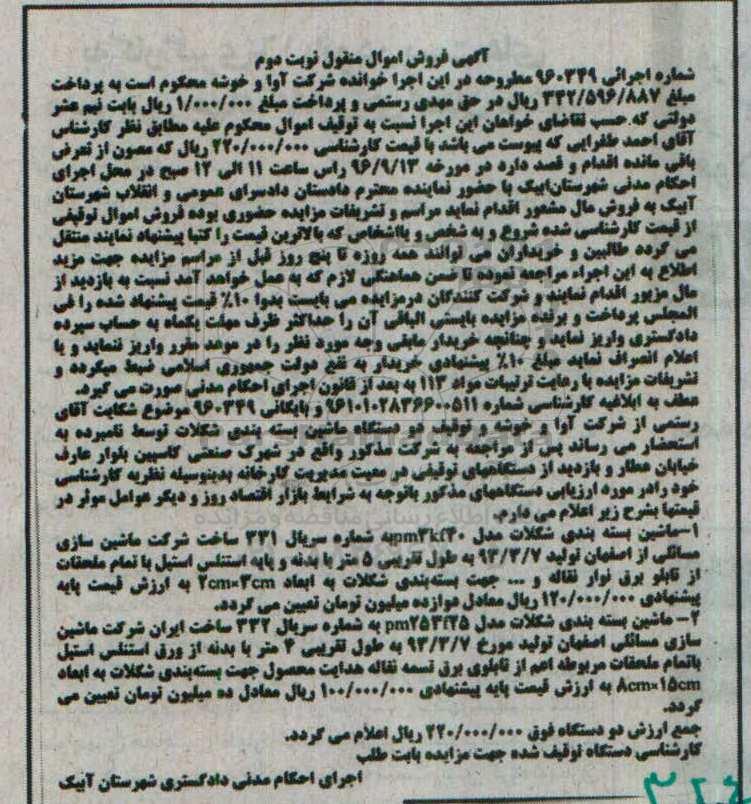 آگهی فروش اموال منقول نوبت دوم
شماره اجرائی ۹۶۰۳۴۹ مطروحه در این اجرا خوانده شرکت آوا و خوشه محکوم است به پرداخت
مبلغ ۳۳۲/۵۹۶/۸۸۷ ریال در حق مهدی رستمی و پرداخت مبلغ ۱/۰۰۰/۰۰۰ ریال بابت نیم عشر
دولتی که حسب تقاضای خواهان این اجرا نسبت به توقیف اموال محکوم علیه مطابق نظر کارشناس
آقای احمد طغرایی که پیوست می باشد با قیمت کارشناسی ۲۲۰/۰۰۰/۰۰۰ ریال که مصون از تعرض
باقی مانده اقدام و قصد دارد در مورخه ۹۶/۹/۱۳ راس ساعت ۱۱ الی ۱۲ صبح در محل اجرای
احکام مدنی شهرستان آبیک با حضور نماینده محترم دادستان دادسرای عمومی و انقلاب شهرستان
آبیک به فروش مال مشعور اقدام نماید مراسم و تشریفات مزایده حضوری بوده فروش اموال توقیفی
از قیمت کارشناسی شده شروع و به شخص و یااشخاص که بالاترین قیمت را کتبا پیشنهاد نمایند منتقل
می گردد طالبین و خریداران می توانند همه روزه تا پنج روز قبل از مراسم مزایده جهت مزید
اطلاع به این اجراء مراجعه نموده تا ضمن هماهنگی لازم که به عمل خواهد آمد نسبت به بازدید از
مال مزبور اقدام نمایند و شرکت کنندگان درمزایده می بایست بدوا ۱۰٪ قیمت پیشنهاد شده را فی
المجلس پرداخت و برنده مزایده بایستی الباقی آن را حداکثر ظرف مهلت یکماه به حساب سپرده
دادگستری واریز نماید و چنانچه خریدار مابقی وجه مورد نظر را در موعد مقرر واریز ننماید و یا
اعلام انصراف نماید مبلغ ۱۰٪ پیشنهادی خریدار به نفع دولت جمهوری اسلامی ضبط میگردد و
تشریفات مزایده با رعایت ترتیبات مواد ۱۱۳ به بعد از قانون اجرای احکام مدنی صورت می گیرد.
عطف به ابلاغیه کارشناسی شماره ۹۶۱۰۱۰۲۸۳۶۶۰۰۵۱۱ و بایگانی ۹۶۰۳۴۹ موضوع شکایت آقای
رستمی از شرکت آوا و خوشه و توقیف دو دستگاه ماشین بسته بندی شکلات توسط نامبرده به
استحضار می رساند پس از مراجعه به شرکت مذکور واقع در شهرک صنعتی کاسپین بلوار عارف
خیابان عطار و بازدید از دستگاههای توقیفی در معیت مدیریت کارخانه بدینوسیله نظریه کارشناسی
خود رادر مورد ارزیابی دستگاههای مذکور باتوجه به شرایط بازار اقتصاد روز و دیگر عوامل موثر در
قیمتها بشرح زیر اعلام می دارم.
۱-ماشین بسته بندی شکلات مدل به شماره سریال ۳۳۱ ساخت شرکت ماشین سازی
مسائلی از اصفهان تولید ۹۳/۳/۷ به طول تقریبی ۵ متر با بدنه و پایه استنلس استیل با تمام ملحقات
از تابلو برق نوار نقاله و ... جهت بسته‌بندی شکلات به ابعاد ۲cm×۳cm به ارزش قیمت پایه
پیشنهادی ۱۲۰/۰۰۰/۰۰۰ ریال معادل دوازده میلیون تومان تعیین می گردد.
۲- ماشین بسته بندی شکلات مدل pm۲۵۳f۲۵ به شماره سریال ۳۳۲ ساخت ایران شرکت ماشین
سازی مسائلی اصفهان تولید مورخ ۹۳/۳/۷ به طول تقریبی ۴ متر با بدنه از ورق استنلس استیل
باتمام ملحقات مربوطه اعم از تابلوی برق تسمه نقاله هدایت محصول جهت بسته‌بندی شکلات به ابعاد
۸cm×۱۵cm به ارزش قیمت پایه پیشنهادی ۱۰۰/۰۰۰/۰۰۰ ریال معادل ده میلیون تومان تعیین می
گردد.
جمع ارزش دو دستگاه فوق ۲۲۰/۰۰۰/۰۰۰ ریال اعلام می گردد.
کارشناسی دستگاه توقیف شده جهت مزایده بابت طلب
اجرای احکام مدنی دادگستری شهرستان آبیک